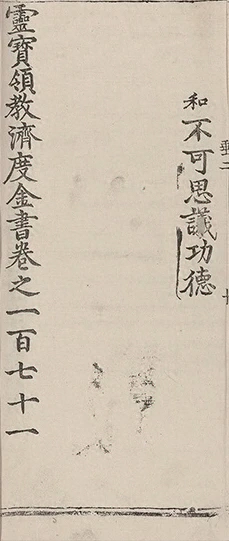 和不可思議功德
靈寶領教濟度金書卷之一百七十一